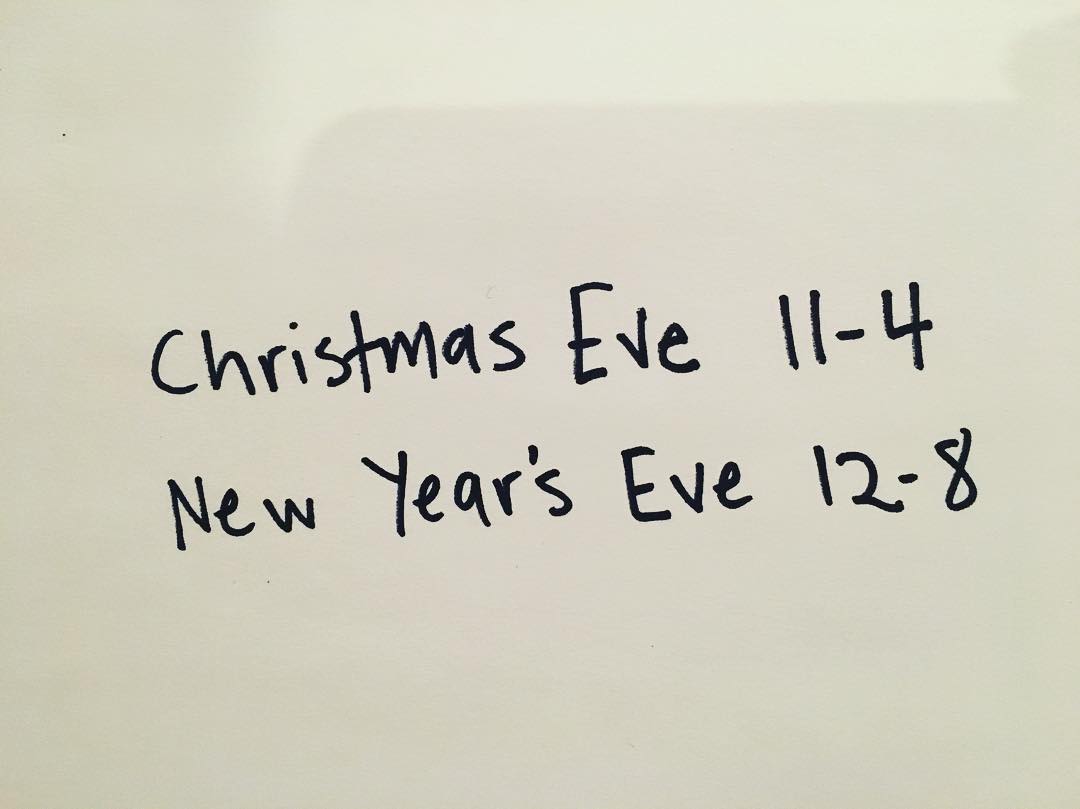 Christmas Eve 11-4
New Year's Eve 12-8